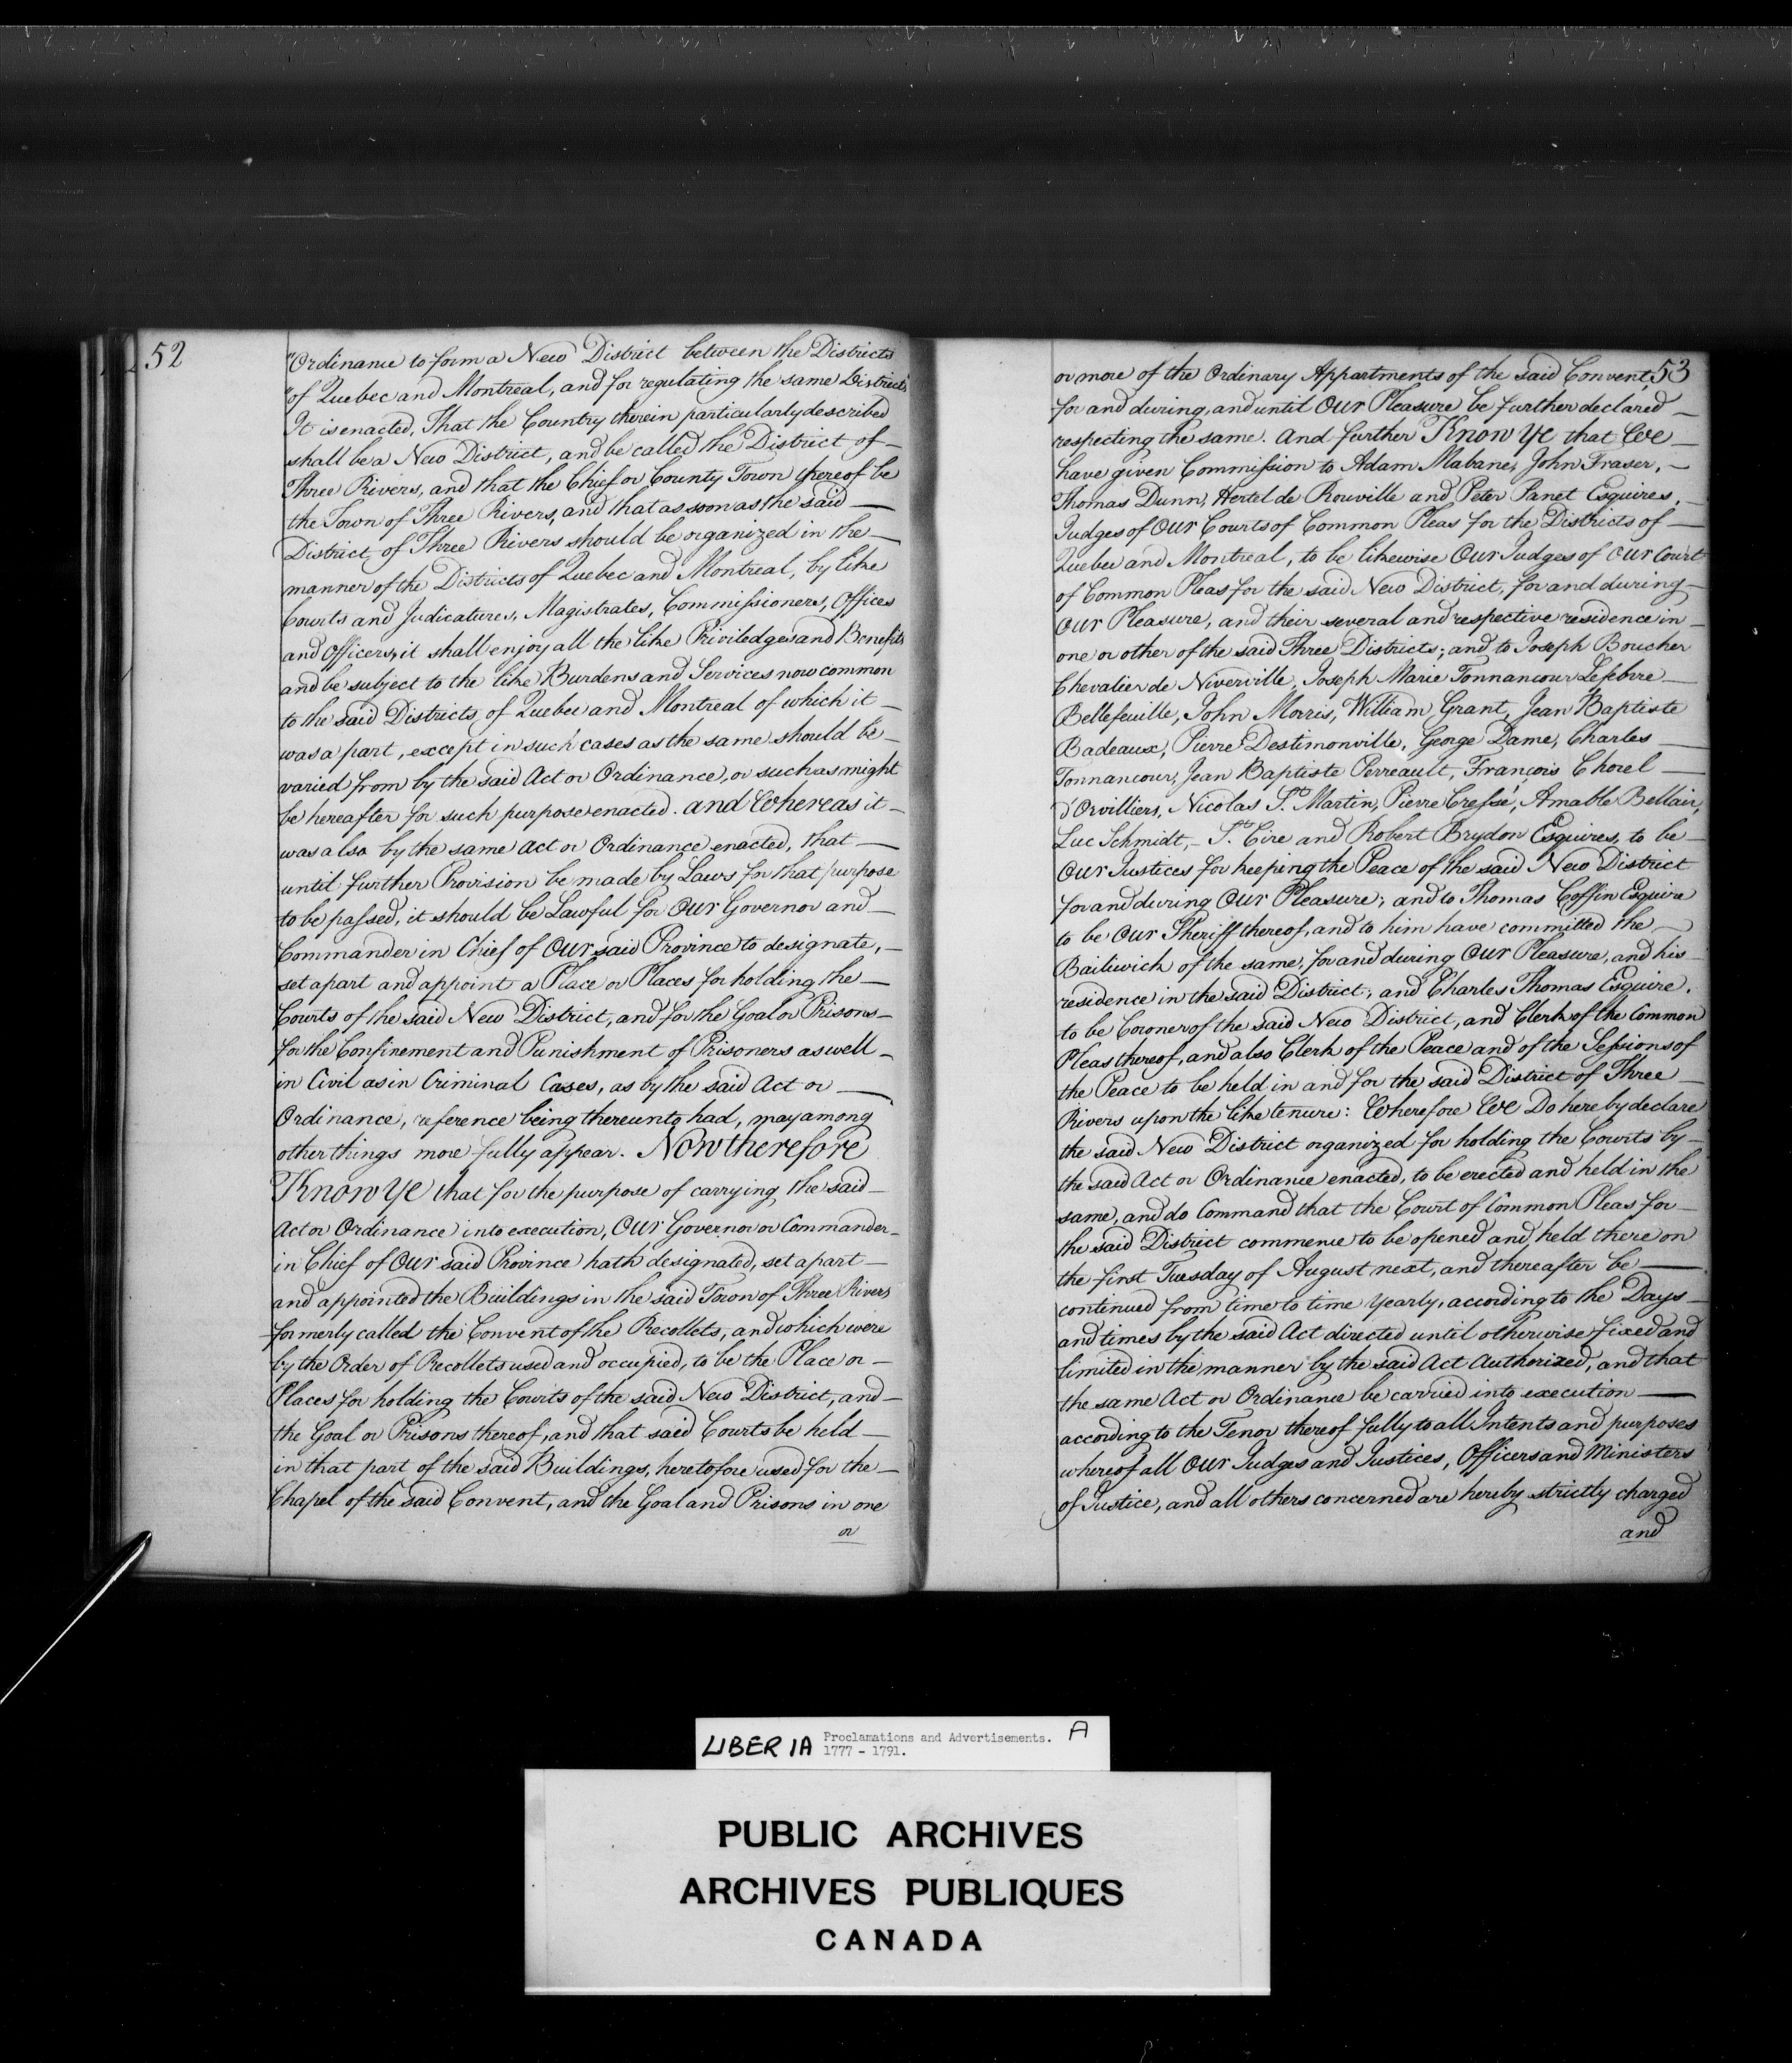 52
"Ordinance to form a New District between the Districts
"of Quebec and Montreal, and for regulating the same Districts"
It is enacted, That the Country therein particularly described
shall be a New District, and be called the District of —
Three Rivers, and that the Chief or County Town thereof be
the Town of Three Rivers, and that as soon as the said —
District of Three Rivers should be organized in the —
manner of the Districts of Quebec and Montreal, by like
Courts and Judicatures, Magistrates, Commissioners, Offices
and Officers, it shall enjoy all the like Priviledges and Benefits
and be subject to the like Burdens and Services now common
to the said Districts of Quebec and Montreal of which it —
was a part, except in such cases as the same should be —
varied from by the said Act or Ordinance, or such as might
be hereafter for such purpose enacted. And Whereas it —
was also by the same Act or Ordinance enacted, that —
until further Provision be made by Laws for that purpose
to be passed, it should be Lawful for Our Governor and —
Commander in Chief of Our said Province to designate, —
set apart and appoint a Place or Places for holding the —
Courts of the said New District, and for the Goal or Prisons —
for the Confinement and Punishment of Prisoners as well —
in Civil as in Criminal Cases, as by the said Act or —
Ordinance, reference being thereunto had, may among
other things more fully appear. Now therefore
Know Ye that for the purpose of carrying the said —
Act or Ordinance into execution, Our Governor or Commander —
in Chief of Our said Province hath designated, set apart —
and appointed the Buildings in the said Town of Three Rivers
formerly called the Convent of the Recollets, and which were
by the Order of Recollets used and occupied, to be the Place or —
Places for holding the Courts of the said New District, and —
the Goal or Prisons thereof, and that said Courts be held —
in that part of the said Buildings, heretofore used for the —
Chapel of the said Convent, and the Goal and Prisons in one
or
53
or more of the Ordinary Appartments of the said Convent,
for and during, and until Our Pleasure be further declared —
respecting the same. And further Know Ye that We —
have given Commission to Adam Mabane, John Fraser, —
Thomas Dunn, Hertel de Rouville and Peter Panet Esquires, —
Judges of Our Courts of Common Pleas for the Districts of —
Quebec and Montreal, to be likewise Our Judges of Our Court
of Common Pleas for the said New District, for and during —
Our Pleasure, and their several and respective residence in —
one or other of the said Three Districts; and to Joseph Boucher
Chevalier de Niverville, Joseph Marie Tonnancour Lefebvre —
Bellefeuille, John Morris, William Grant, Jean Baptiste
Badeaux, Pierre Destimonville, George Dame, Charles —
Tonnancour, Jean Baptiste Perreault, François Chorel —
d'Orvilliers, Nicolas St. Martin, Pierre Cressé, Amable Bellair,
Luc Schmidt, – St. Cire and Robert Brydon Esquires, to be —
Our Justices for keeping the Peace of the said New District
for and during Our Pleasure; and to Thomas Coffin Esquire
to be Our Sheriff thereof, and to him have committed the —
Bailiwick of the same, for and during Our Pleasure, and his —
residence in the said District; and Charles Thomas Esquire,
to be Coroner of the said New District, and Clerk of the Common
Pleas thereof, and also Clerk of the Peace and of the Sessions of
the Peace to be held in and for the said District of Three —
Rivers upon the like tenure: Wherefore We Do hereby declare
the said New District organized for holding the Courts by —
the said Act or Ordinance enacted, to be erected and held in the
same, and do Command that the Court of Common Pleas for —
the said District commence to be opened and held there on
the first Tuesday of August next, and thereafter be —
continued from time to time Yearly, according to the Days —
and times by the said Act directed until otherwise fixed and
limited in the manner by the said Act Authorized, and that
the same Act or Ordinance be carried into execution —
according to the Tenor thereof fully to all Intents and purposes
whereof all Our Judges and Justices, Officers and Ministers
of Justice, and all others concerned are hereby strictly charged
and
LIBER IA Proclamations and Advertisements. A
1777 - 1791.
PUBLIC ARCHIVES
ARCHIVES PUBLIQUES
CANADA